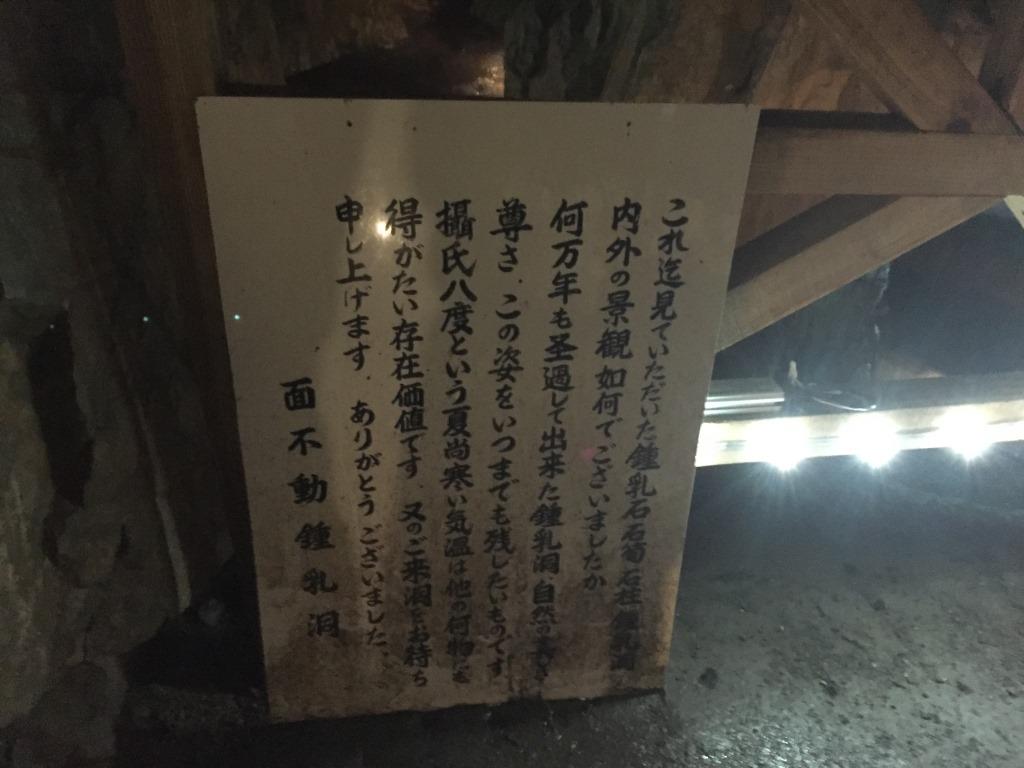 これ迄見ていただいた鍾乳石石筍石柱鍾乳洞
内外の景観如何でございましたか
何万年も圣過して出来た鍾乳洞、自然の
尊さ、この姿をいつまでも残したいものです
攝氏八度という夏尚寒い気温は他の何物にも
得がたい存在価値です、又のご来洞をお待ち
申し上げます、ありがとうございました、
面不動鍾乳洞